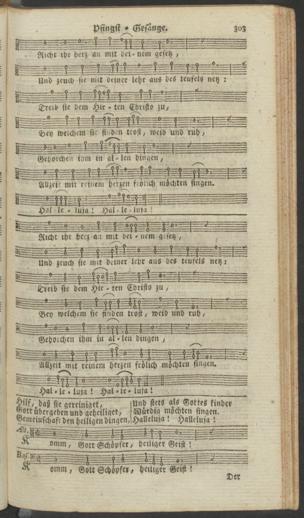 Pfingst-Gesänge. 303
Richt ihr herz an mit dei-nem gesetz,
Und zeuch sie mit deiner lehr aus des teufels netz:
Treib sie dem Hir-ten Christo zu,
Bey welchem sie finden trost, weid und ruh,
Gehorchen ihm in al-len dingen,
Allzeit mit reinem herzen frölich möchten singen.
Hal-le-luja! Hal-le-luja!
Richt ihr herz an mit dei-nem gesetz,
Und zeuch sie mit deiner lehr aus des teufels netz:
Treib sie dem Hir-ten Christo zu,
Bey welchem sie finden trost, weid und ruh,
Gehorchen ihm in al-len dingen,
Allzeit mit reinem herzen frölich möchten singen.
Hal-le-luja! Hal-le-luja!
Hilf, daß sie gereiniget,
Gott übergeben und geheiliget,
Gemeinschaft den heiligen dingen,
Und stets als Gottes kinder
Würdig möchten singen.
Halleluja! Halleluja!
Komm, Gott Schöpfer, heiliger Geist!
Komm, Gott Schöpfer, heiliger Geist!
Der